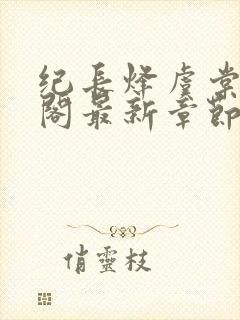 纪长烽虞棠
阁最新章节
俏灵枝